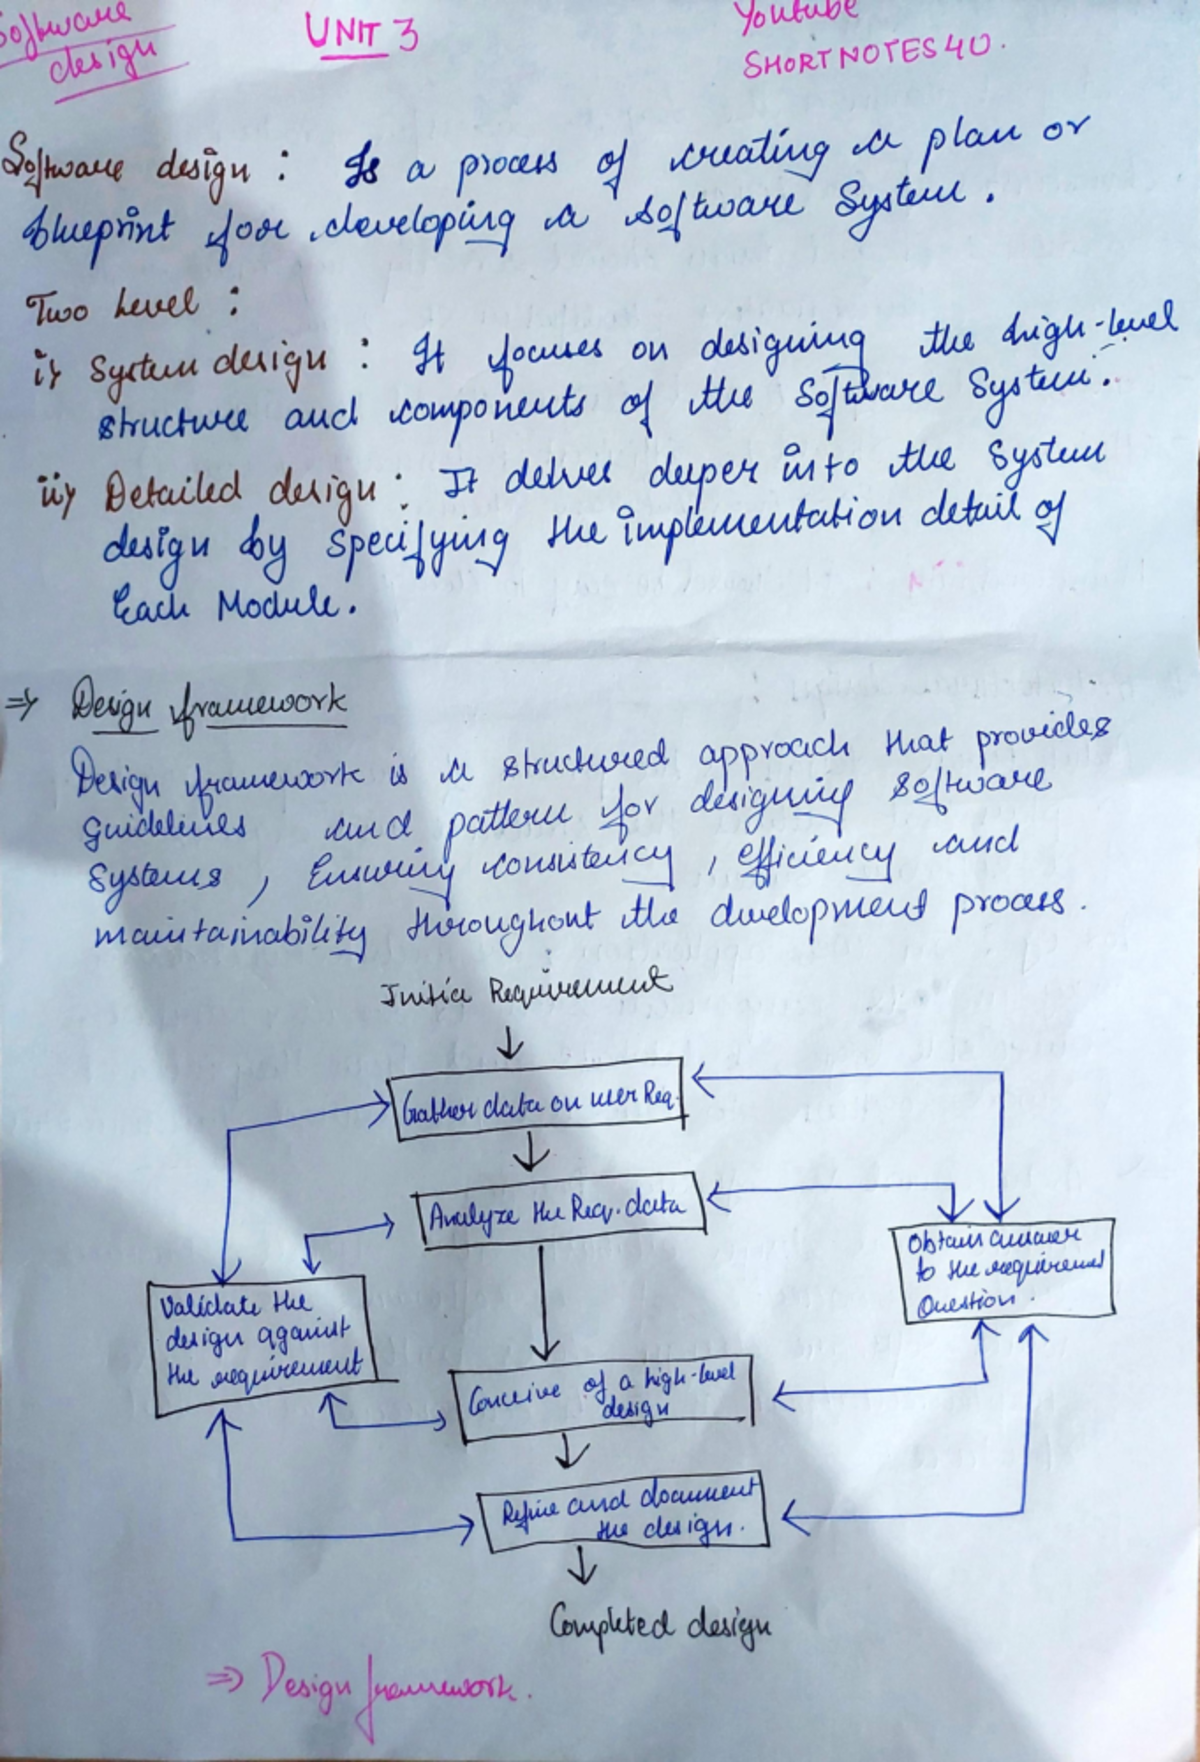 Software
design
UNIT 3
Youtube
SHORTNOTES4U.
Software design : Is a process of creating a plan or
blueprint for developing a software System.
Two Level :
i) System design : It focuses on designing the high-level
structure and components of the Software System.
ii) Detailed design : It delves deeper into the System
design by specifying the implementation detail of
Each Module.
⇒ Design framework
Design framework is a structured approach that provides
guidelines and pattern for designing software
systems, Ensuring consistency, efficiency and
maintainability throughout the development process.
Initia Requirement
Gather data on user Req.
Analyze the Req. data
Obtain answer
to the requirement
Question.
Validate the
design against
the requirement
Conceive of a high-level
design
Refine and document
the design.
Completed design
⇒ Design framework.